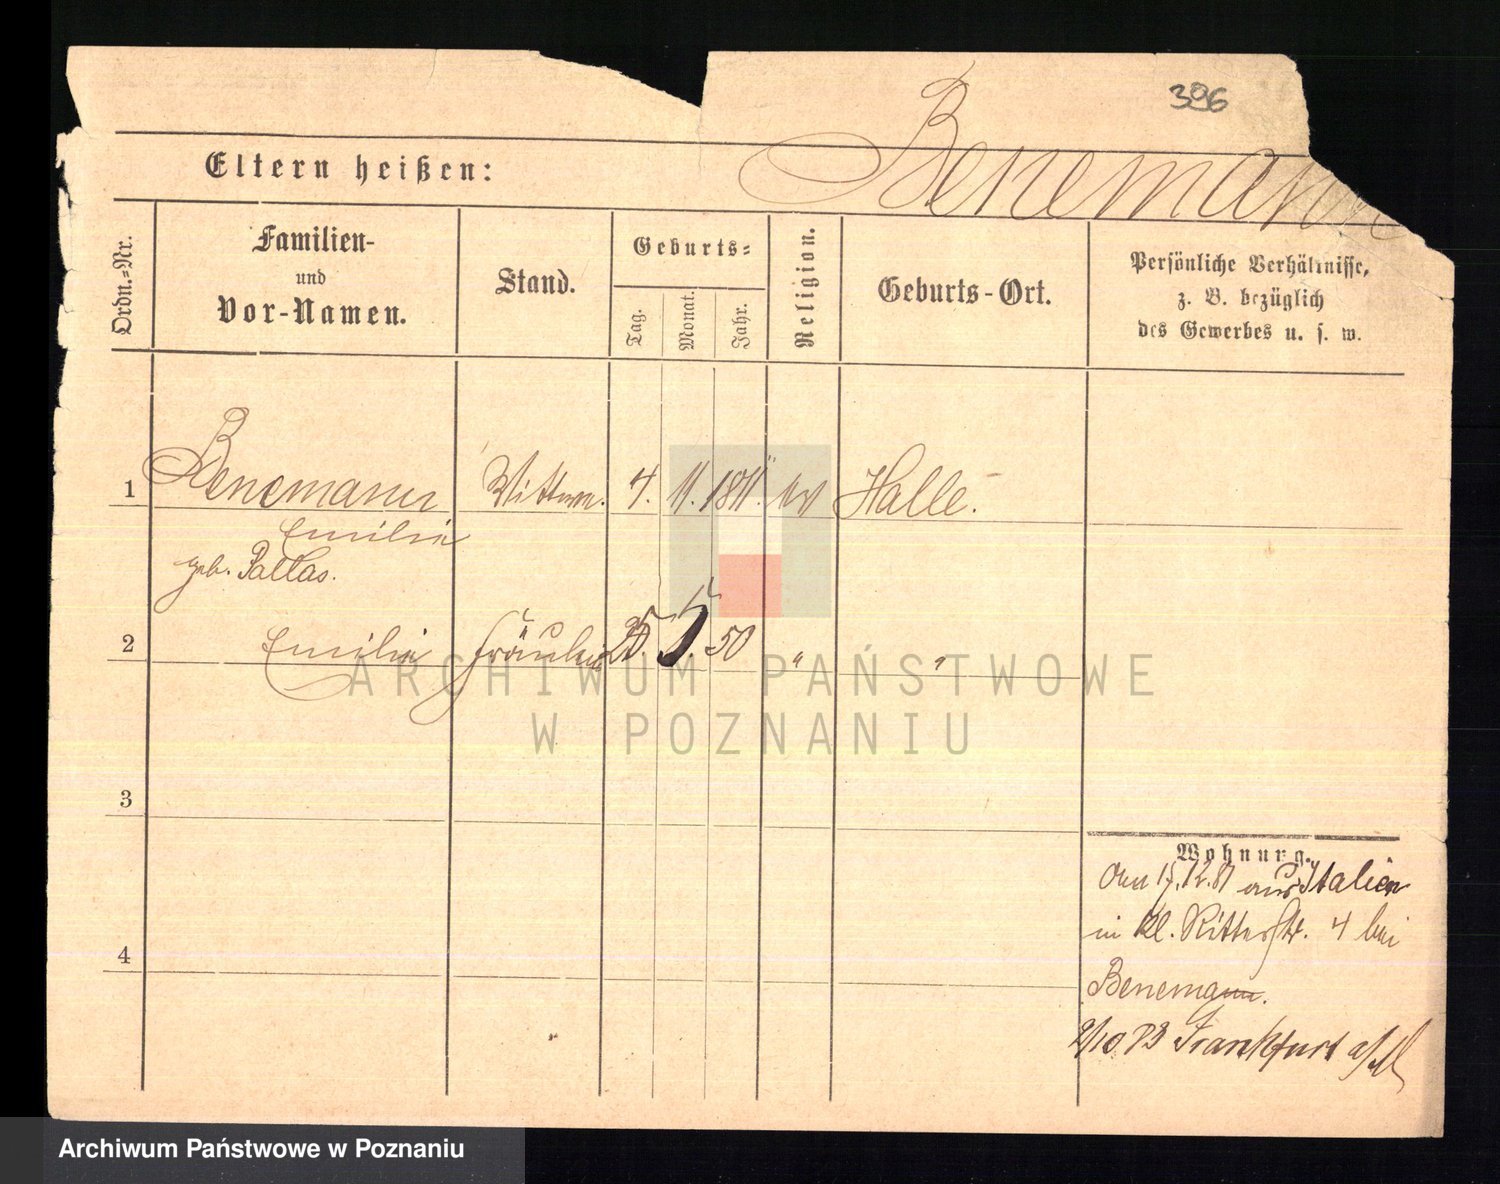 396
Benemann
Eltern heißen:
Ordn.-Nr.
Familien-
und
Vor-Namen.
Stand.
Geburts-
Tag.
Monat.
Jahr.
Religion.
Geburts-Ort.
Persönliche Verhältnisse,
z. B. bezüglich
des Gewerbes u. s. w.
1 Benemann Wittwe. 4. 11. 1811. ev Halle.
Emilie
geb. Pallas.
2 Emilie Fräulein 25. 5. 50 " "
3
4
Wohnung.
17.12.81 aus Italien
in Kl. Ritterstr. 4 bei
Benemann.
2/10 93 Frankfurt a/M
ARCHIWUM PAŃSTWOWE
W POZNANIU
Archiwum Państwowe w Poznaniu